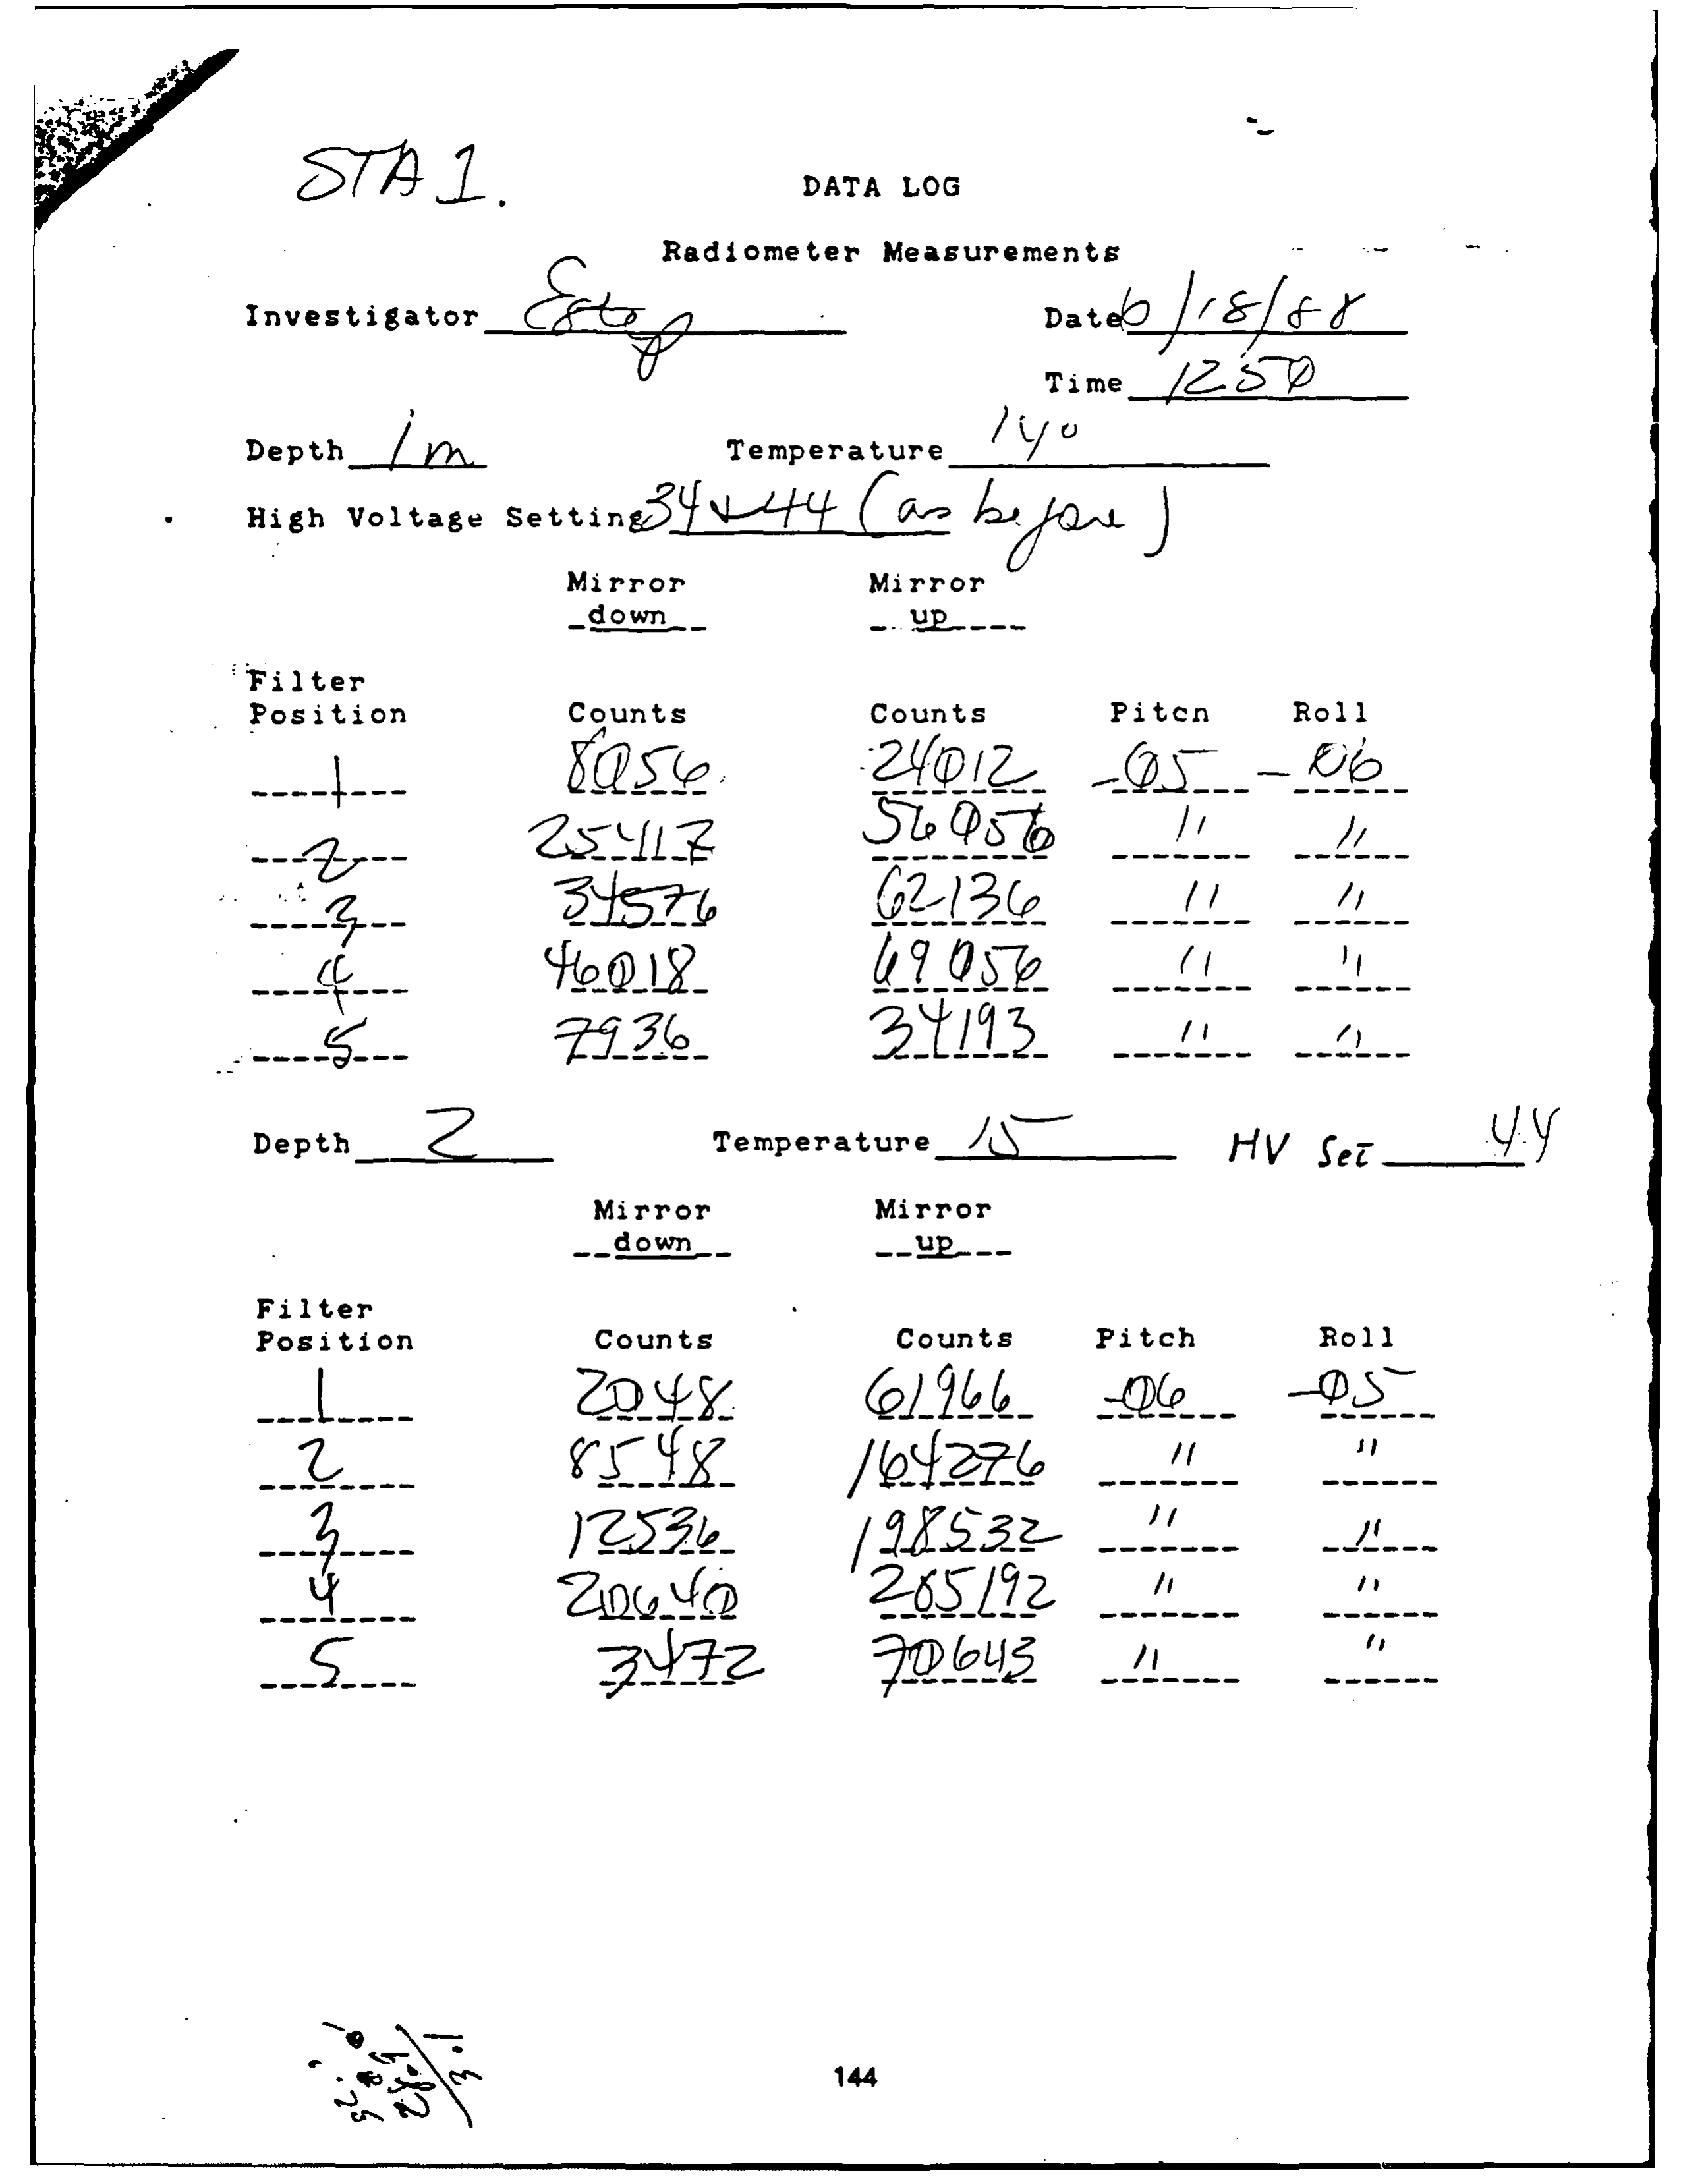 STA 1.
DATA LOG
Radiometer Measurements
Investigator Date 6/18/88
Time 1250
Depth 1m Temperature 14°
High Voltage Setting 34 + 44 (as before)
Mirror Mirror
down up
Filter
Position Counts Counts Pitch Roll
1 8056 24012 -05 -06
2 25417 56056 " "
3 34576 62136 " "
4 46018 69056 " "
5 7936 34193 " "
Depth 2 Temperature 15 HV Set 44
Mirror Mirror
down up
Filter
Position Counts Counts Pitch Roll
1 2048 61966 -06 -05
2 8548 164276 " "
3 12536 198532 " "
4 20640 285192 " "
5 3472 70643 " "
144